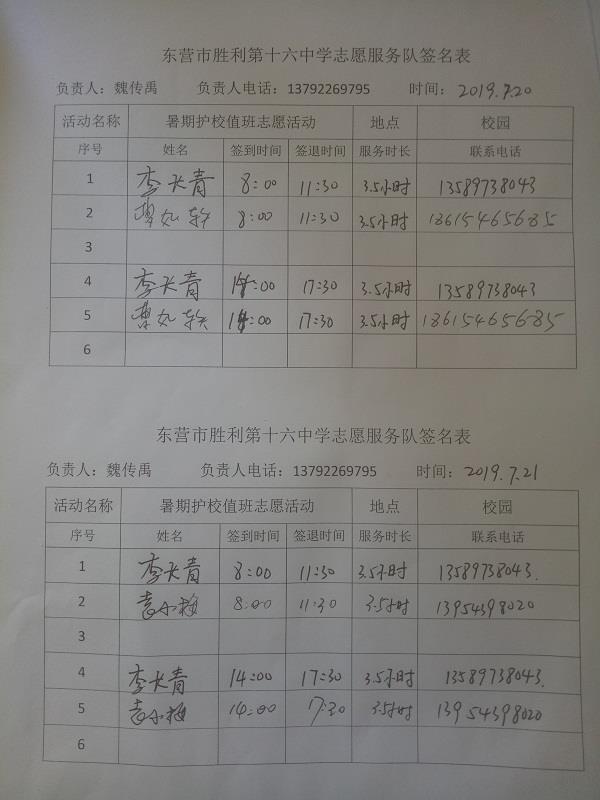 东营市胜利第十六中学志愿服务队签名表
负责人：魏传禹 负责人电话：13792269795 时间：2019.7.20
活动名称 暑期护校值班志愿活动 地点 校园
序号 姓名 签到时间 签退时间 服务时长 联系电话
1 李长青 8:00 11:30 3.5小时 13589738043
2 曹如轶 8:00 11:30 3.5小时 18615465685
3
4 李长青 14:00 17:30 3.5小时 13589738043
5 曹如轶 14:00 17:30 3.5小时 18615465685
6
东营市胜利第十六中学志愿服务队签名表
负责人：魏传禹 负责人电话：13792269795 时间：2019.7.21
活动名称 暑期护校值班志愿活动 地点 校园
序号 姓名 签到时间 签退时间 服务时长 联系电话
1 李长青 8:00 11:30 3.5小时 13589738043.
2 袁小梅 8:00 11:30 3.5小时 13954398020
3
4 李长青 14:00 17:30 3.5小时 13589738043.
5 袁小梅 14:00 17:30 3.5小时 13954398020
6